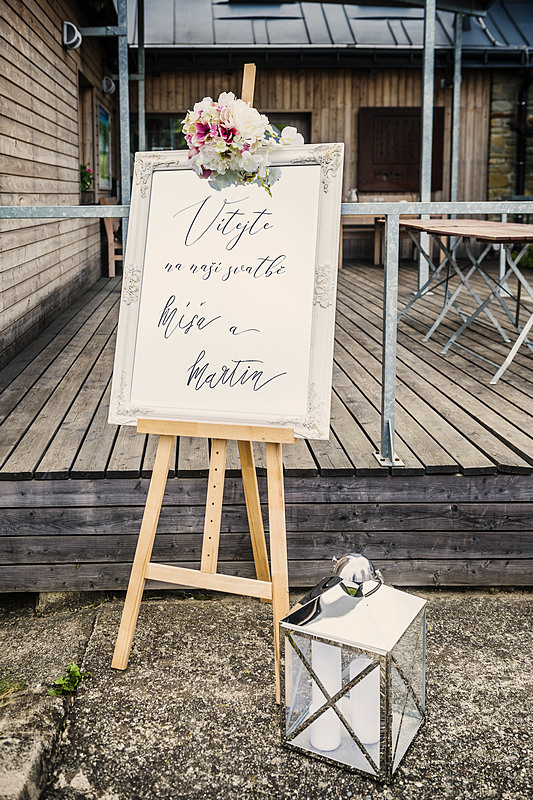 Vítejte
na naší svatbě
Míša a
Martin